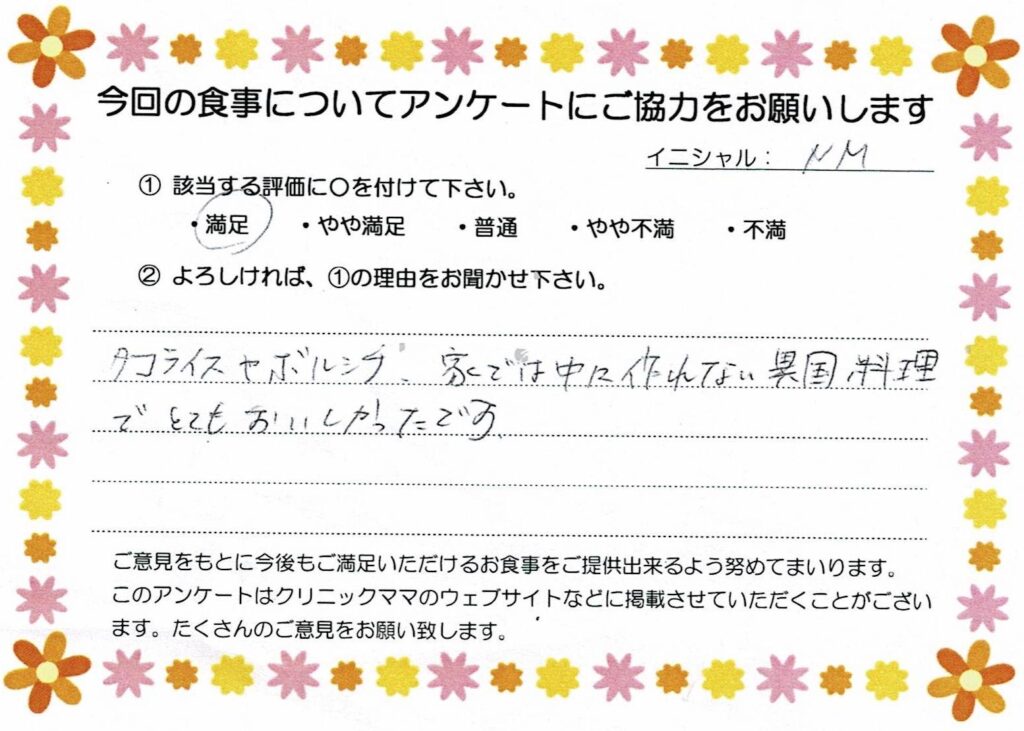 今回の食事についてアンケートにご協力をお願いします
イニシャル： NM
① 該当する評価に〇を付けて下さい。
・満足 ・やや満足 ・普通 ・やや不満 ・不満
② よろしければ、①の理由をお聞かせ下さい。
タコライスやボルシチ、家では中々作れない異国料理
でとてもおいしかったです。
ご意見をもとに今後もご満足いただけるお食事をご提供出来るよう努めてまいります。
このアンケートはクリニックママのウェブサイトなどに掲載させていただくことがござい
ます。たくさんのご意見をお願い致します。